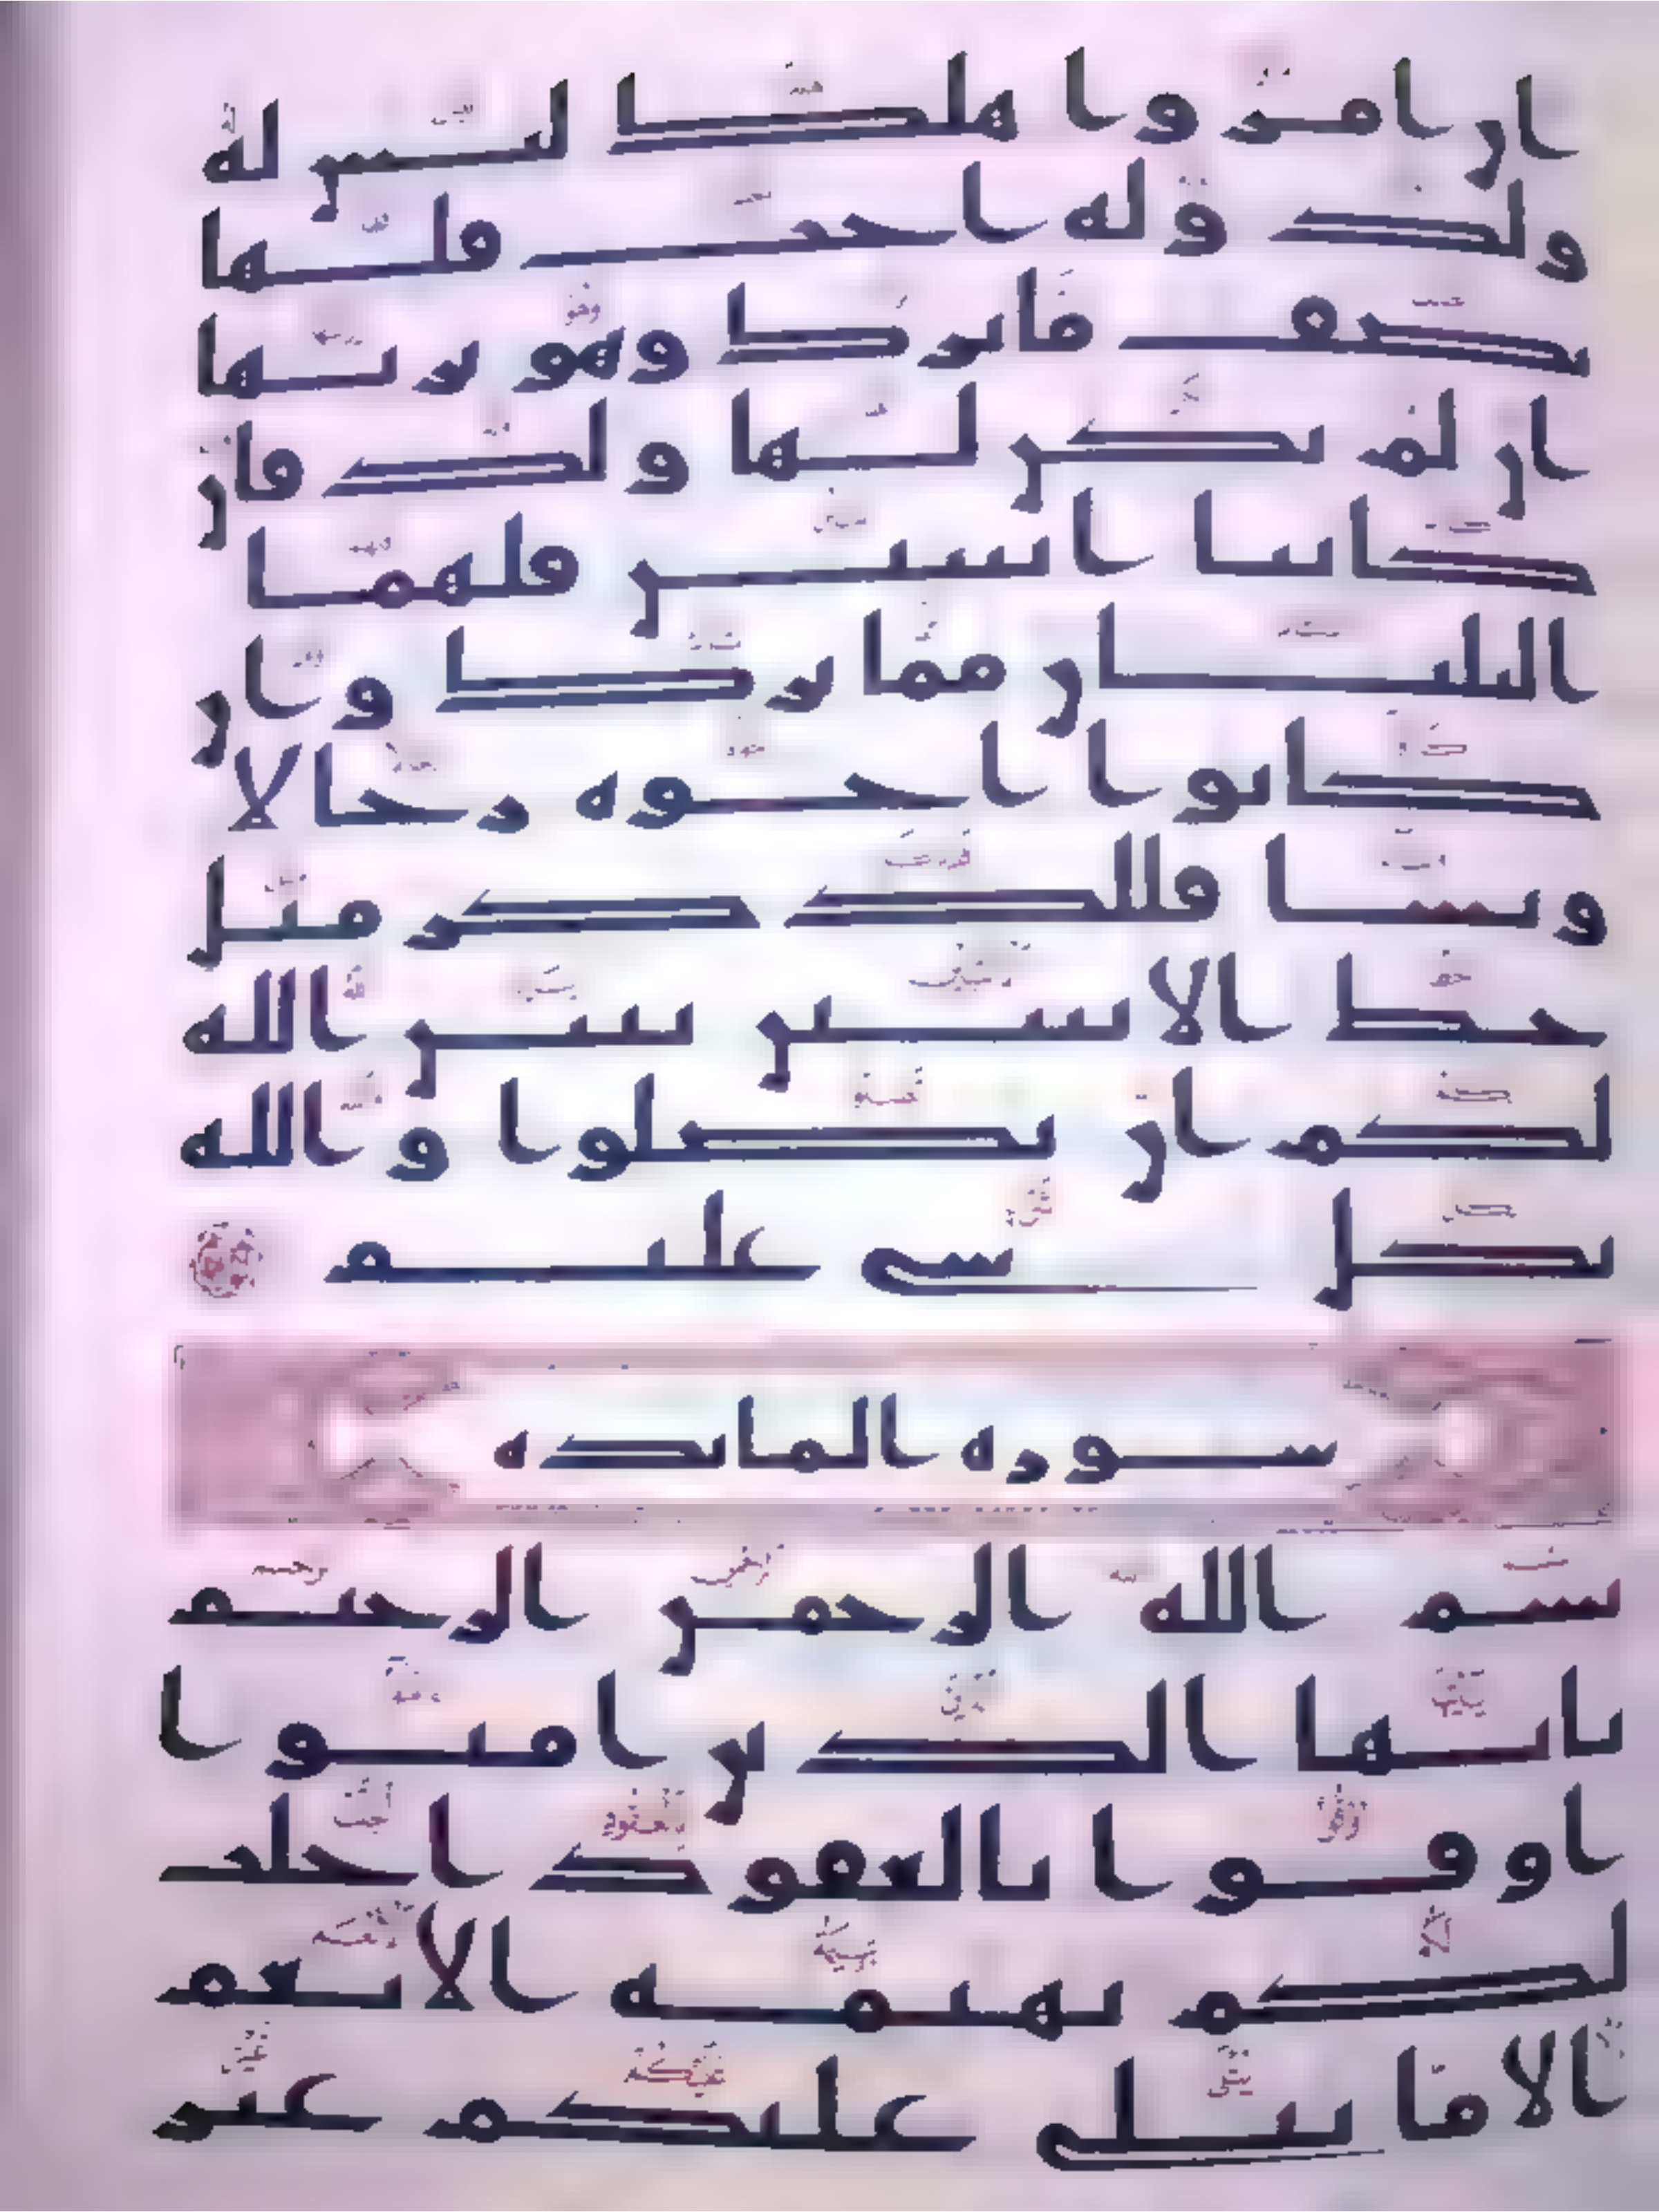 ان امرؤا هلك ليس له
ولد وله اخت فلها
نصف ما ترك وهو يرثها
ان لم يكن لها ولد فان
كانتا اثنتين فلهما
الثلثان مما ترك وان
كانوا اخوه رجالا
ونسا فللذكر مثل
حظ الانثيين يبين الله
لكم ان تضلوا والله
بكل شى عليم
سوره المائده
بسم الله الرحمن الرحيم
يايها الذين امنوا ا
اوفوا بالعقود احلت
لكم بهيمه الانعم
الا ما يتلى عليكم غير